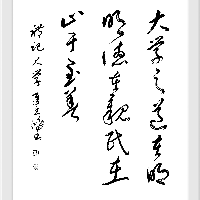 大学之道在明
明德在親民在
止于至善
禮记大学